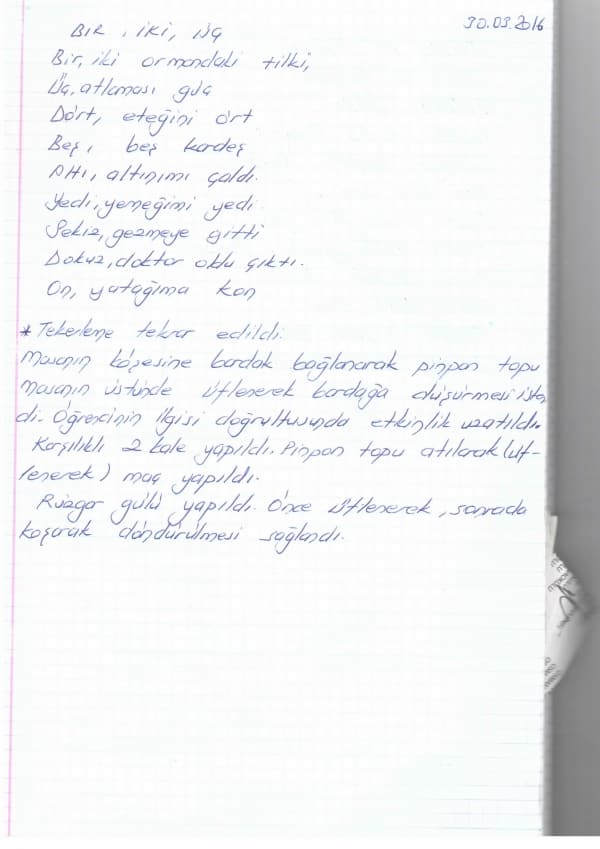 30.03.2016
BIR, İKİ, ÜÇ
Bir, iki ormandaki tilki,
Üç, atlaması güç
Dört, eteğini ört
Beş, beş kardeş
Altı, altınımı çaldı.
Yedi, yemeğimi yedi
Sekiz, gezmeye gitti
Dokuz, doktor oldu çıktı.
On, yatağıma kon
* Tekerleme tekrar edildi.
Masanın köşesine bardak bağlanarak pinpon topu
masanın üstünde üflenerek bardağa düşürmesi isten
di. Öğrencinin ilgisi doğrultusunda etkinlik uzatıldı.
Karşılıklı 2 kale yapıldı. Pinpon topu atılarak (üf-
lenerek) maç yapıldı.
Rüzgar gülü yapıldı. Önce üflenerek, sonrada
koşarak döndürülmesi sağlandı.